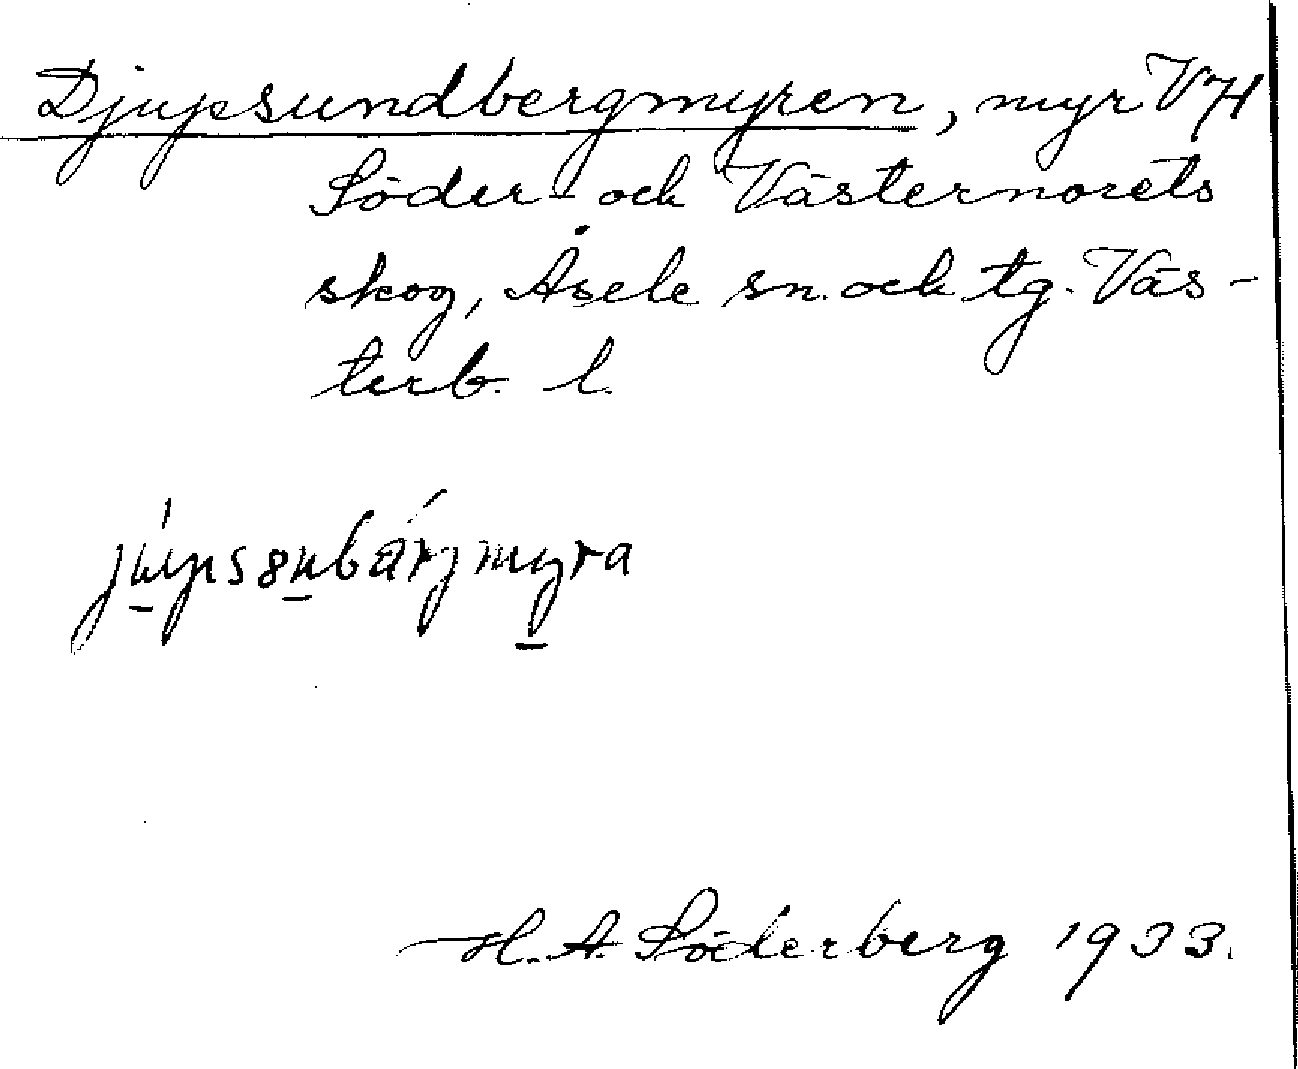 Djupsundbergmyren, myr V74
Söder- och Västernorets
skog, Åsele sn. och tg. Väs-
terb. l.
H. A. Söderberg 1933.